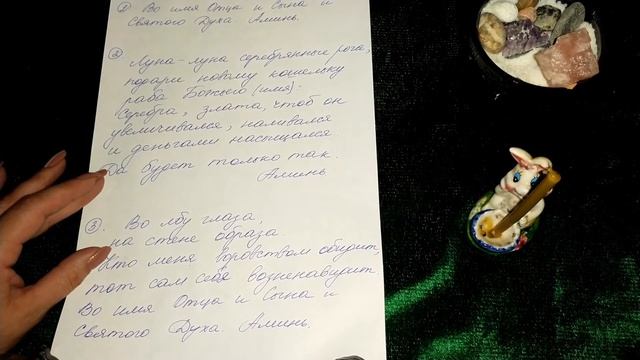 ① Во имя Отца и Сына и
Святого Духа Аминь.
② Луна-луна серебрянные рога,
подари новому кошельку
раба Божьего (имя):
Серебра, злата, чтоб он
увеличивался, наливался
и деньгами насыщался.
Да будет только так.
Аминь
③. Во лбу глаза,
на стене образа.
Кто меня воровством обидит,
тот сам себя возненавидит.
Во имя Отца и Сына и
Святого Духа. Аминь.